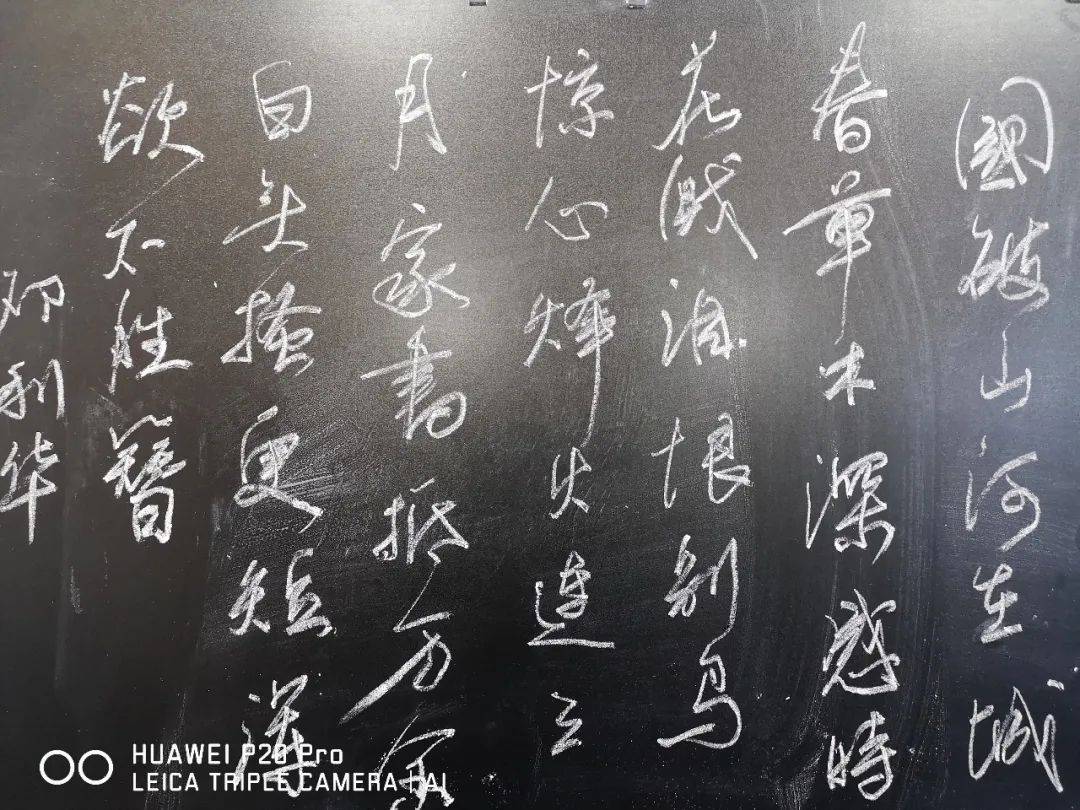 國破山河在城
春草木深感時
花溅泪恨别鸟
惊心烽火连三
月家書抵万金
白头搔更短浑
欲不胜簪
邓利华
HUAWEI P20 Pro
LEICA TRIPLE CAMERA | AI